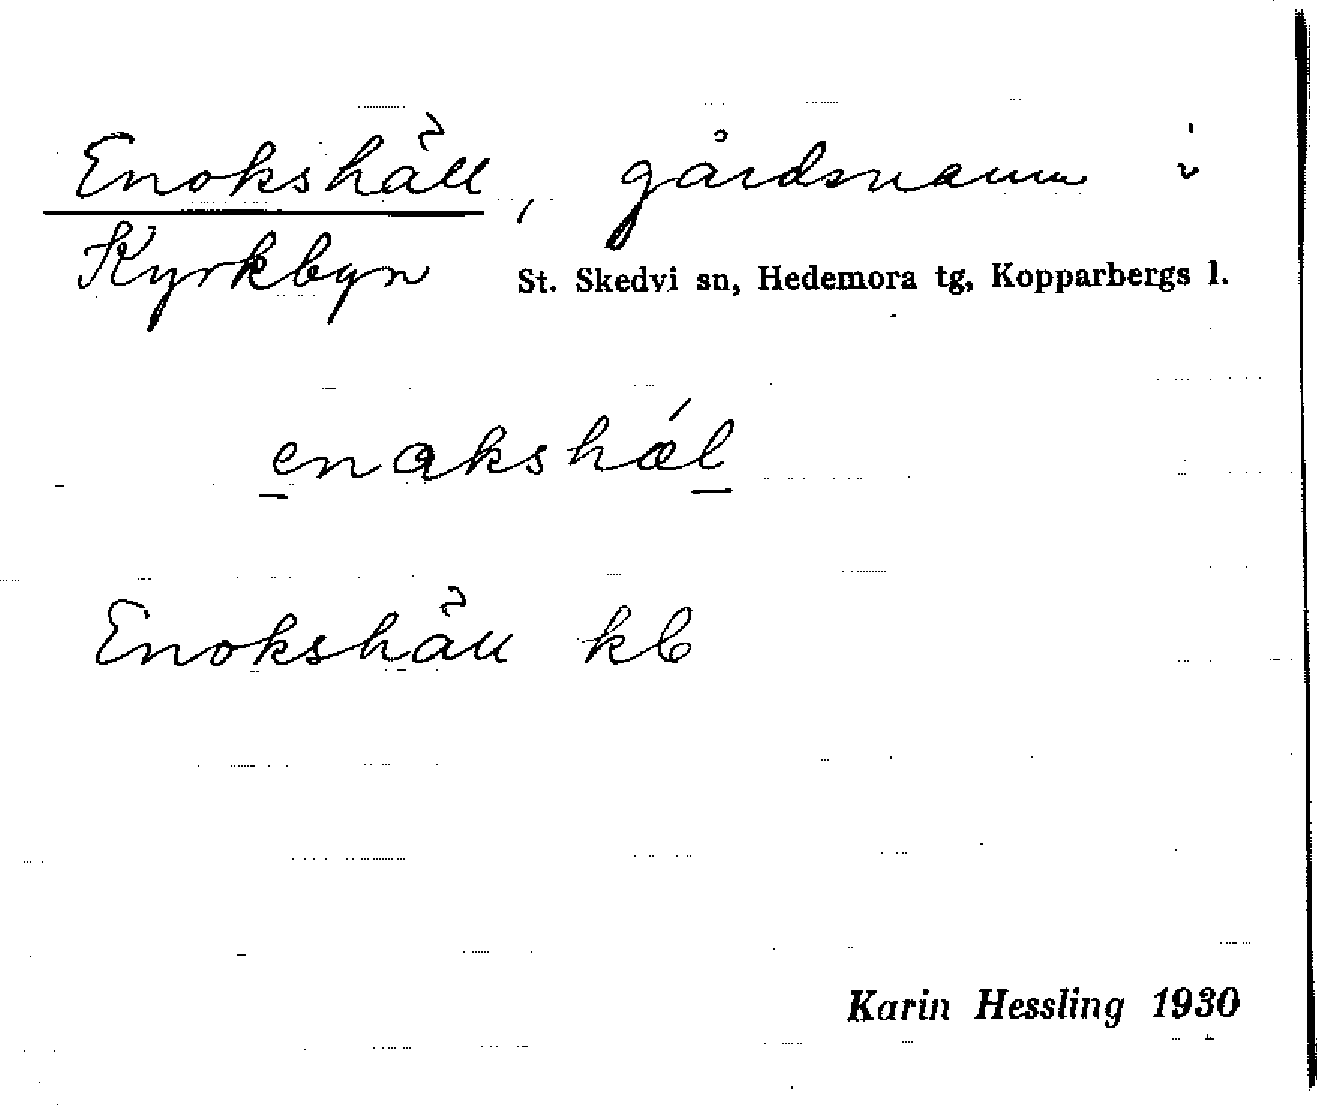 Enokshäll, gårdsnamn i
Kyrkbyn St. Skedvi sn, Hedemora tg, Kopparbergs l.
enakshǽl
Enokshäll kb
Karin Hessling 1930